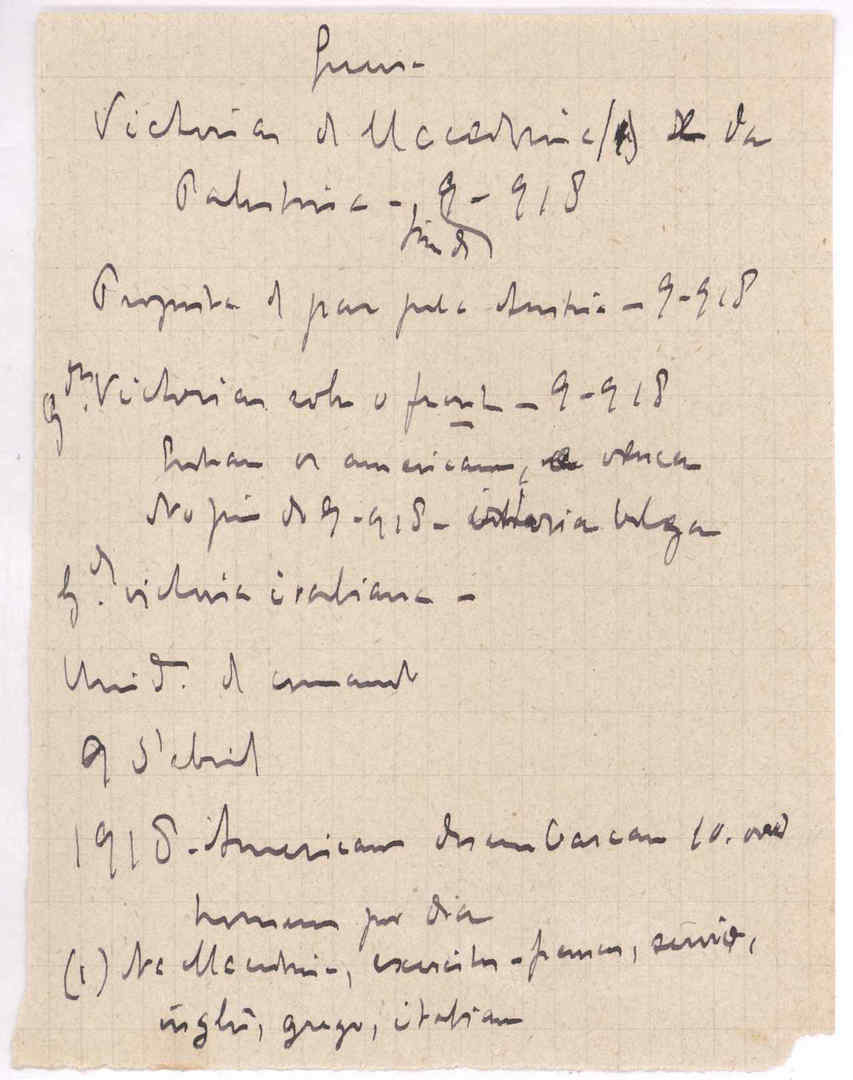 Guerra
Victorias de Macedonia (1) e da
Palestina -, 9 - 918
fim de
Proposta de paz pela Austria - 9-918
Gdes. Victorias sobre o front - 9-918
os americanos, e
No fim de 9-918 - victoria belga
Gde. victoria italiana -
Unide. de comando
9 d'abril
1918 - Americanos desembarcam 10.000
homens por dia
(1) Na Macedonia, exercitos - frances, servio,
inglês, grego, italiano